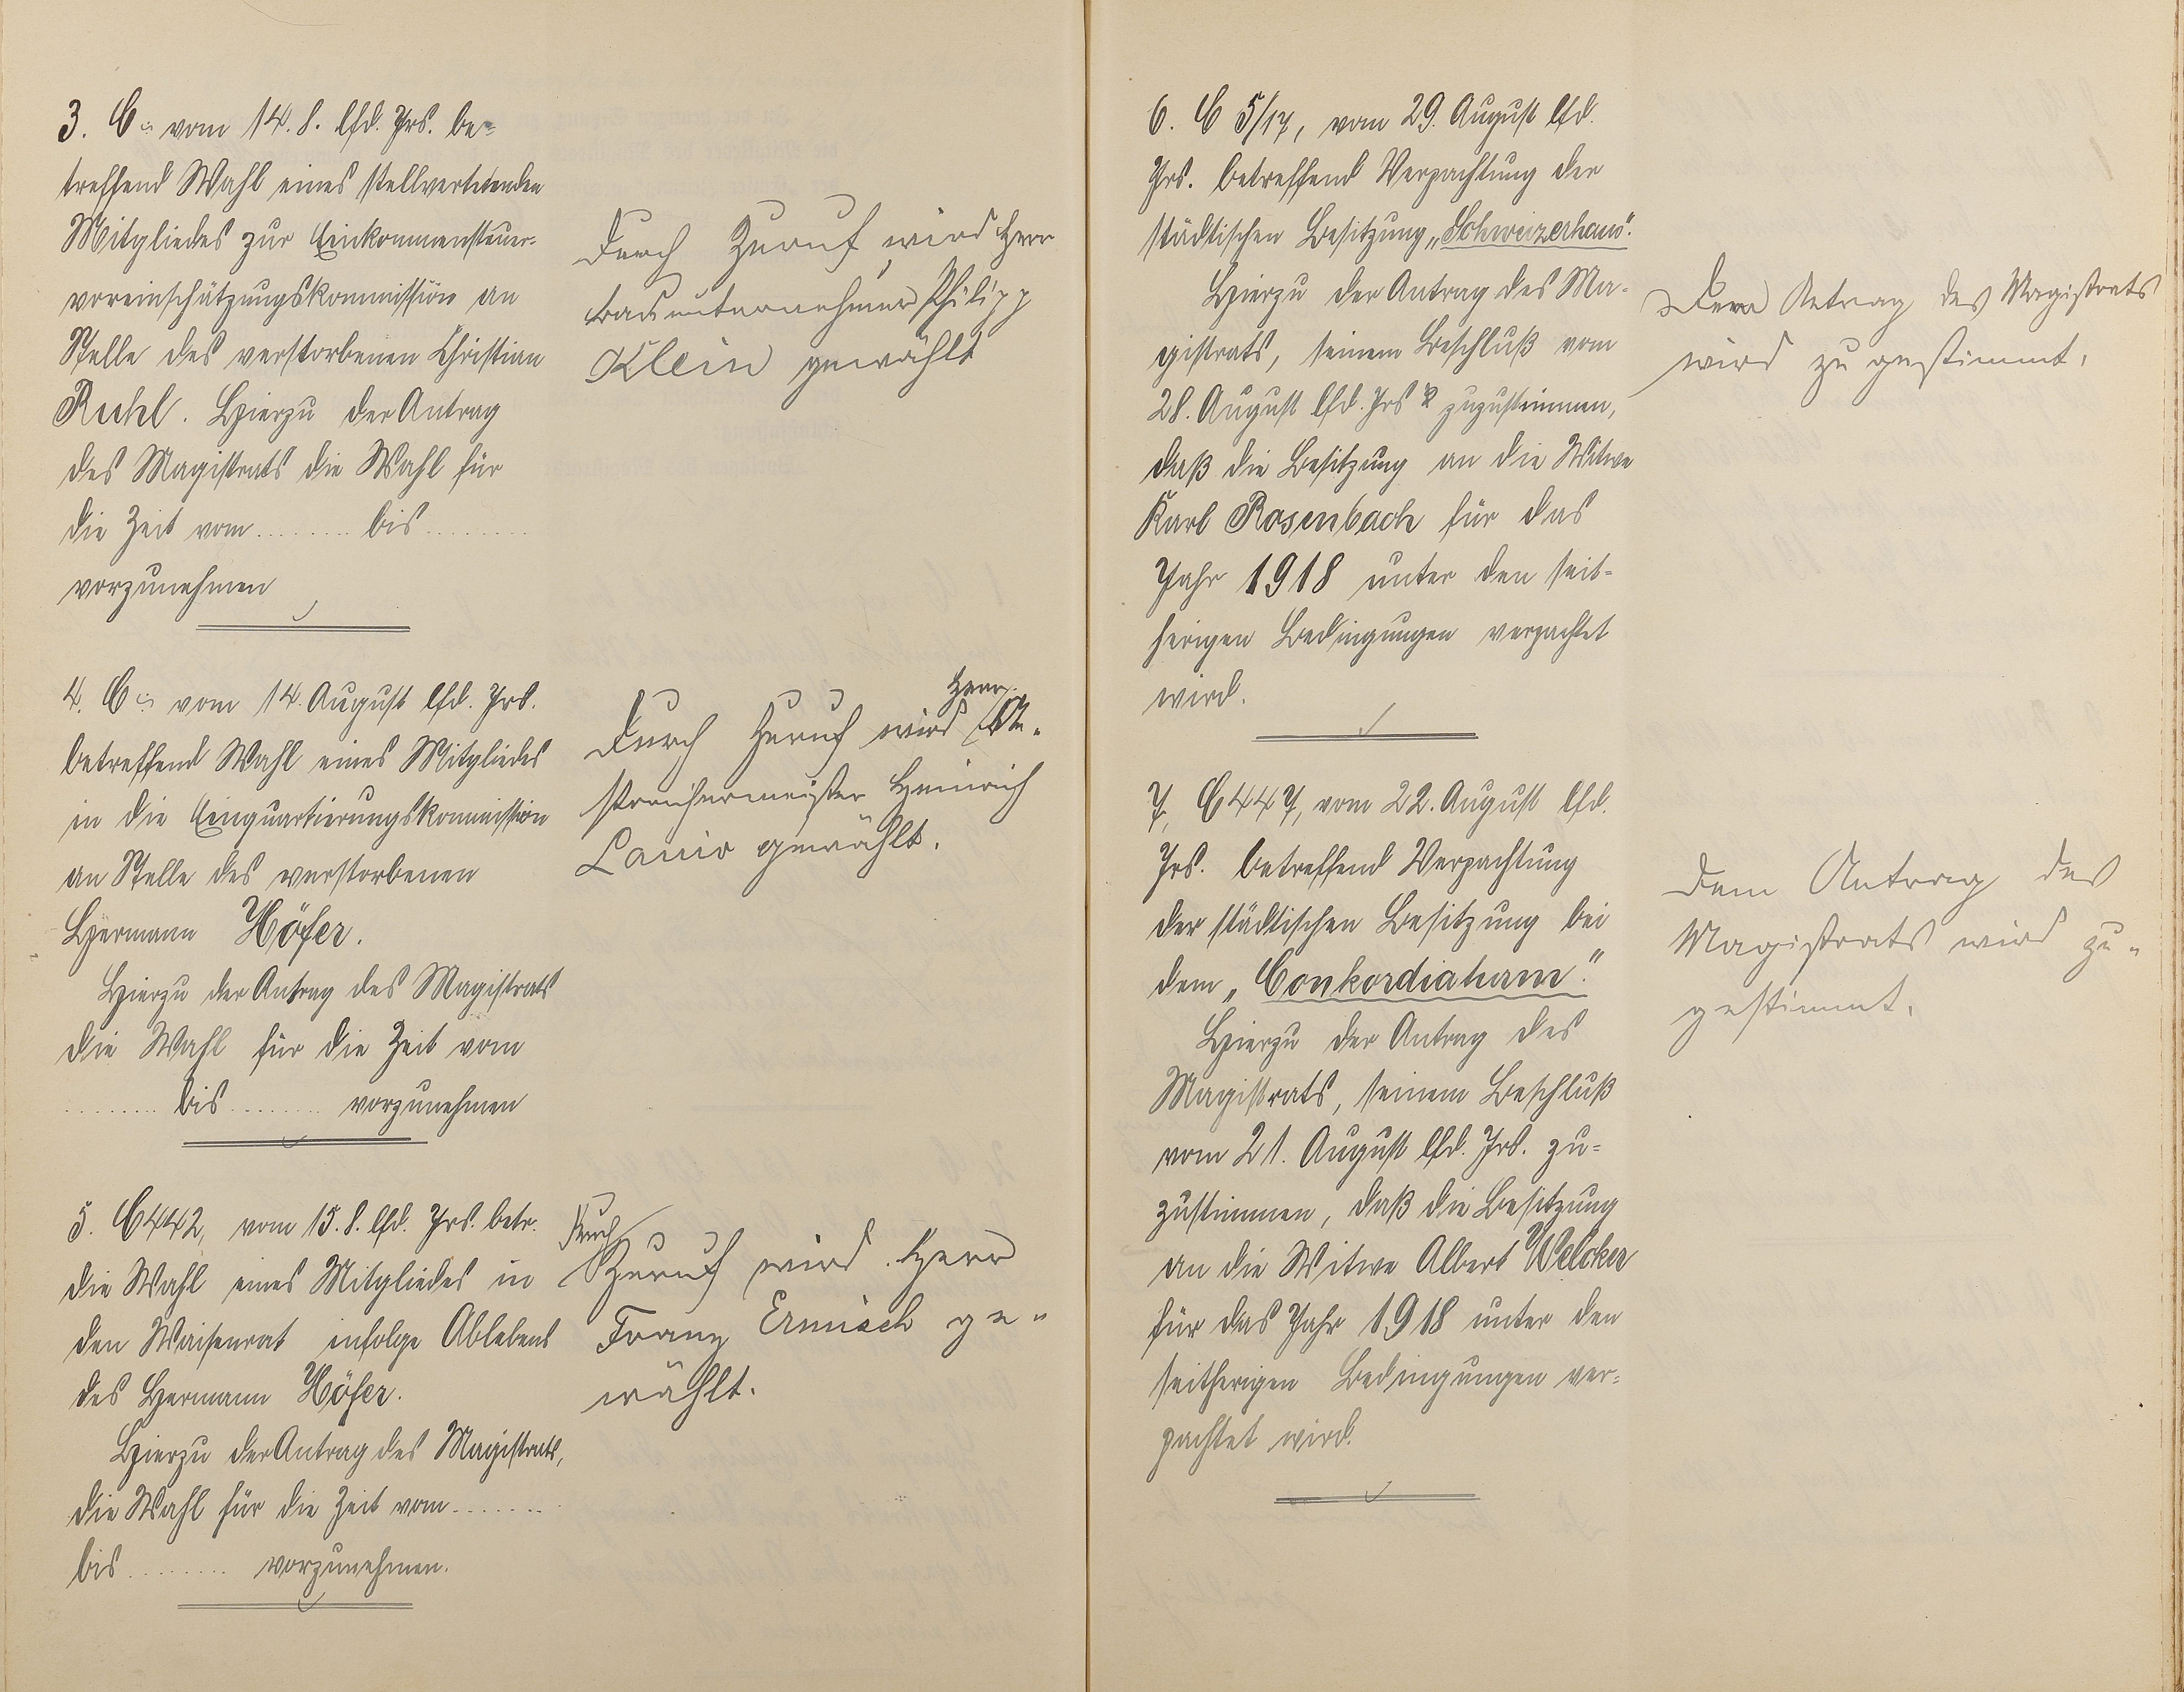 3. C vom 14.8. lfd. Jrs. be=
treffend Wahl eines stellvertretenden
Mitgliedes zur Einkommensteuer-
voreinschätzungskommission an
Stelle des verstorbenen Christian
Hierzu der Antrag
des Magistrats die Wahl für
die Zeit vom ........ bis ........
vorzunehmen
Durch Zuruf wird Herr
Bauunternehmer Philipp
Klein gewählt
4. C vom 14. August lfd. Jrs.
betreffend Wahl eines Mitgliedes
in die Einquartierungskommission
an Stelle des verstorbenen
Hermann Höfer.
Hierzu der Antrag des Magistrats
die Wahl für die Zeit vom
........ bis ........ vorzunehmen
Herr
Durch Zuruf wird
Heinrich
gewählt.
5. C 442, vom 15.8. lfd. Jrs. betr.
die Wahl eines Mitgliedes in
den Waisenrat infolge Ablebens
des Hermann Höfer.
Hierzu der Antrag des Magistrats,
die Wahl für die Zeit vom .......
bis ........ vorzunehmen.
Durch
Zuruf wird Herr
Franz Ermisch ge-
wählt.
6. C 5/17, vom 29. August lfd.
Jrs. betreffend Verpachtung der
städtischen Besitzung „Schweizerhaus“.
Hierzu der Antrag des Ma-
gistrats, seinem Beschluß vom
28. August lfd. Jrs zuzustimmen,
daß die Besitzung an die Witwe
Karl Rosenbach für das
Jahr 1918 unter den seit=
herigen Bedingungen verpachtet
wird.
Dem Antrag des Magistrats
wird zugestimmt.
7. C 447, vom 22. August lfd.
Jrs. betreffend Verpachtung
der städtischen Besitzung bei
dem „Conkordiaturm“.
Hierzu der Antrag des
Magistrats, seinem Beschluß
vom 21. August lfd. Jrs. zu=
zustimmen, daß die Besitzung
an die Witwe Albert Welcker
für das Jahr 1918 unter den
seitherigen Bedingungen ver=
pachtet wird.
Dem Antrag des
Magistrats wird zu-
gestimmt.